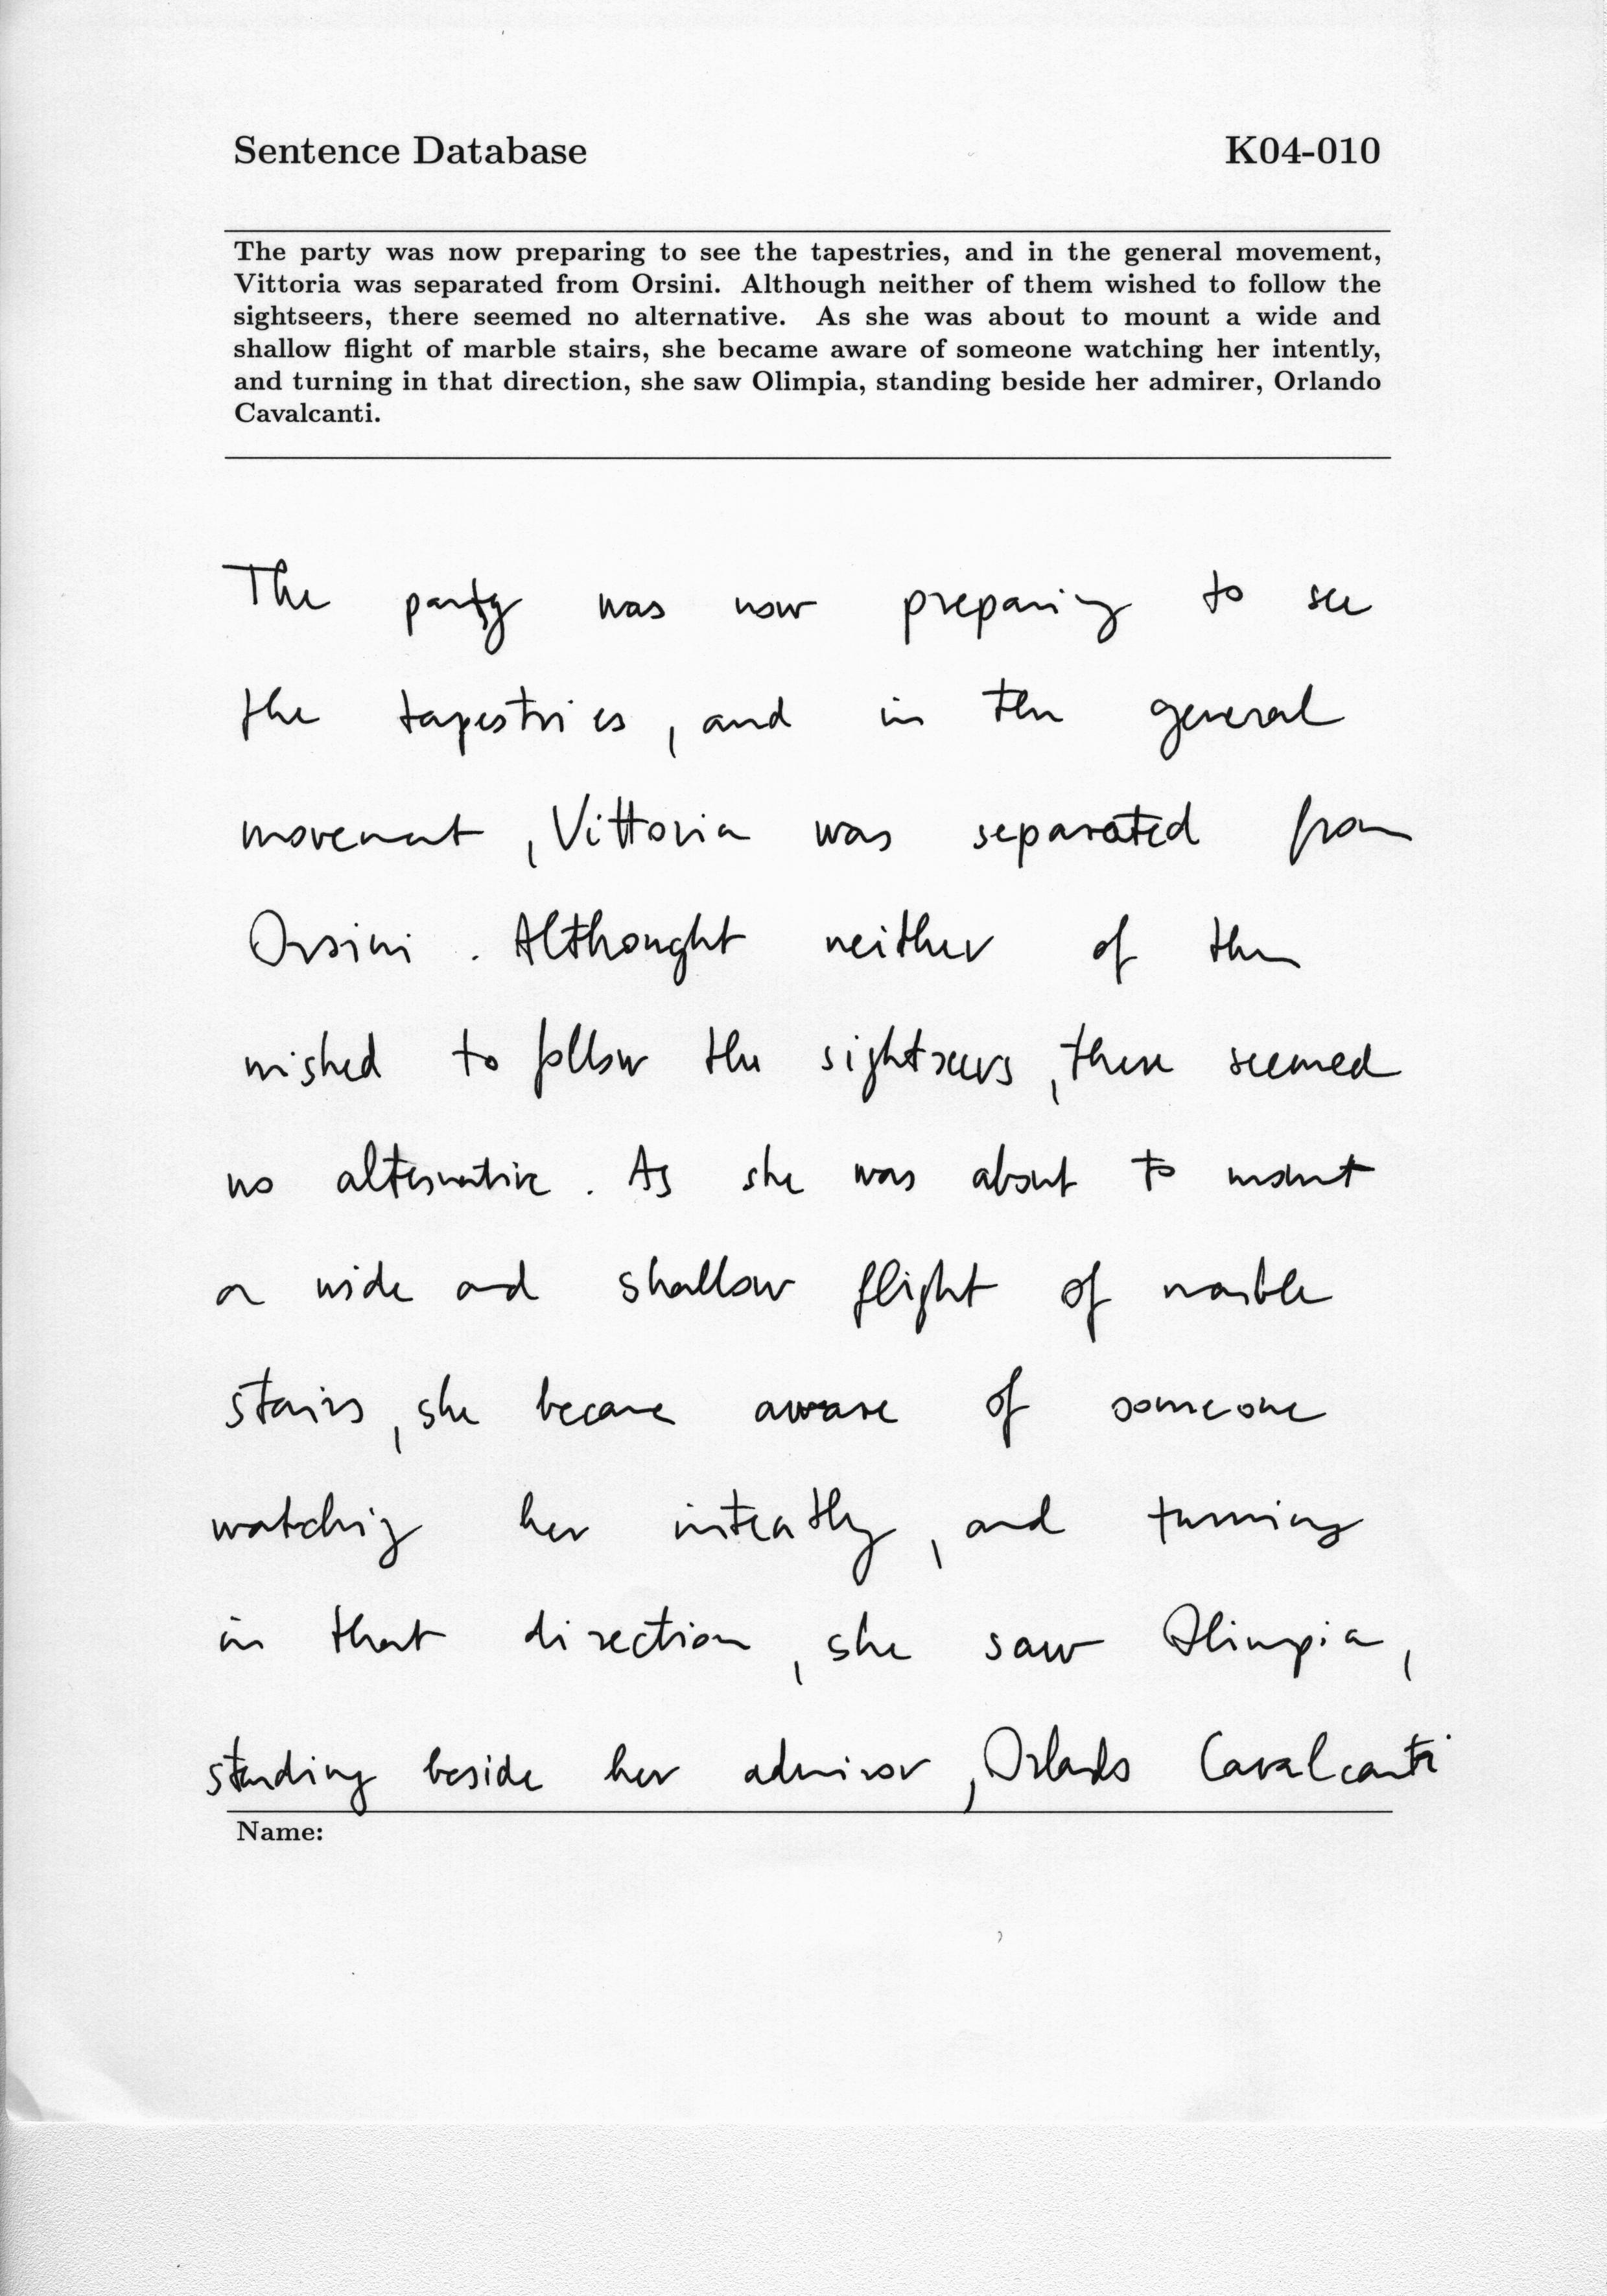 Sentence Database K04-010
The party was now preparing to see the tapestries, and in the general movement,
Vittoria was separated from Orsini. Although neither of them wished to follow the
sightseers, there seemed no alternative. As she was about to mount a wide and
shallow flight of marble stairs, she became aware of someone watching her intently,
and turning in that direction, she saw Olimpia, standing beside her admirer, Orlando
Cavalcanti.
The party was now preparing to see
the tapestries, and in the general
movement, Vittoria was separated from
Orsini. Althought neither of them
wished to follow the sightseers, there seemed
no alternative. As she was about to mount
a wide and shallow flight of marble
stairs, she became aware of someone
watching her intently, and turning
in that direction, she saw Olimpia,
standing beside her admiror, Orlando Cavalcanti
Name: